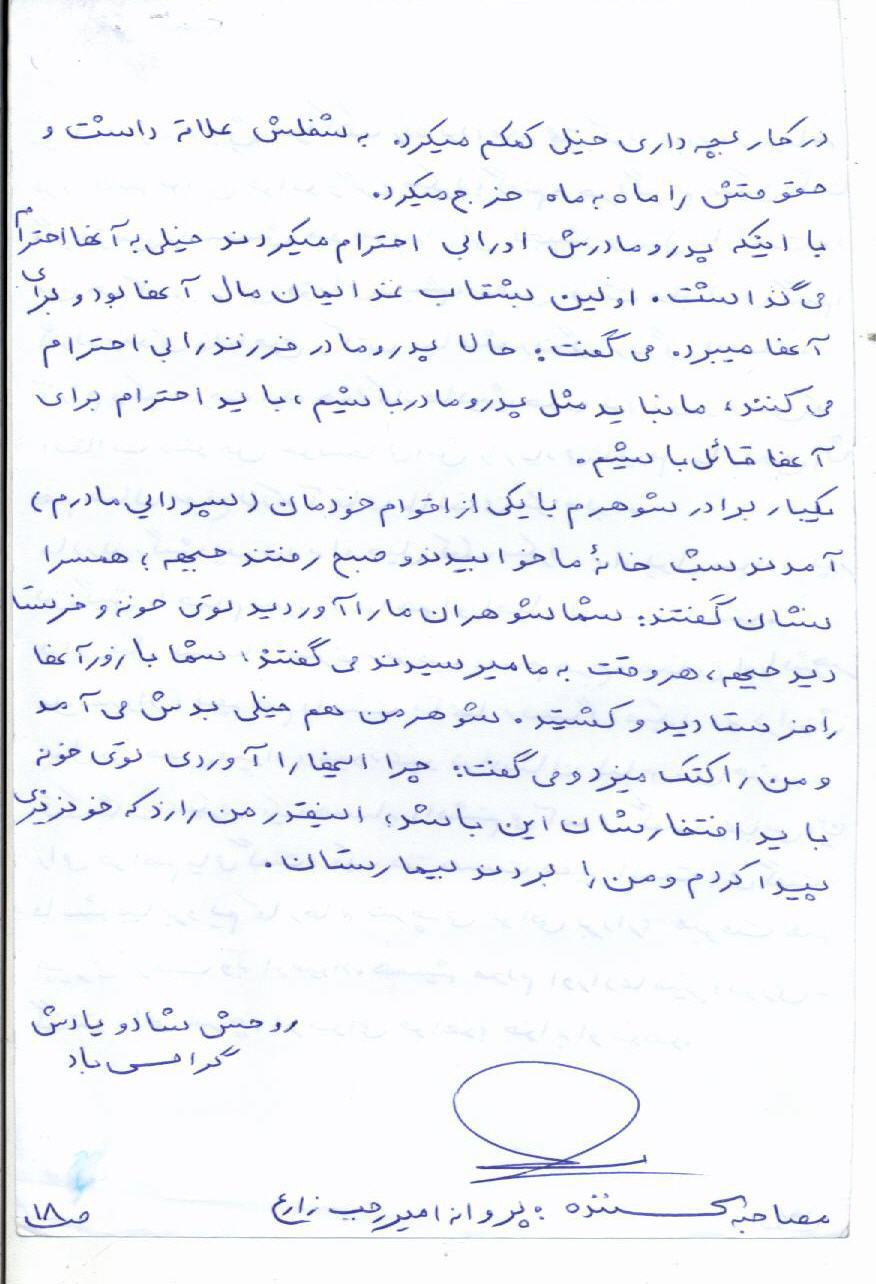 در کار بچه داری خیلی کمکم میکرد. به شغلش علاقه داشت و
حقوقش را ماه به ماه خرج میکرد.
با اینکه پدرو مادرش اورابی احترام میکردند خیلی به آنها احترام
می گذاشت. اولین بشقاب غذا ایمان مال آنها بود و برای
آنها میبرد. می گفت: حالا پدرو مادر فرزند رابی احترام
می کنند، ما نباید مثل پدرو مادر باشیم، باید احترام برای
آنها قائل باشیم.
یکبار برادر شوهرم با یکی از اقوام خودمان (پسردایی مادرم)
آمدند شب خانهٔ ما خوابیدند و صبح رفتند جبهه؛ همسرا
نشان گفتند: شما شوهران ما را آوردید توی خونه و فرستا
دید جبهه، هر وقت به ما میرسیدند می گفتند، شما با زور آنها
را فرستادید و کشتید. شوهر من هم خیلی بدش می آمد
و من را کتک میزد و می گفت: چرا اینها را آوردی توی خونه
باید افتخارشان این باشد، اینقدر من را زد که خونریزی
پیدا کردم و من را بردند بیمارستان.
روحش شاد و یادش
گرامی باد
مصاحبه کننده : پروانه امیر رجب زارع
ص ۱۸